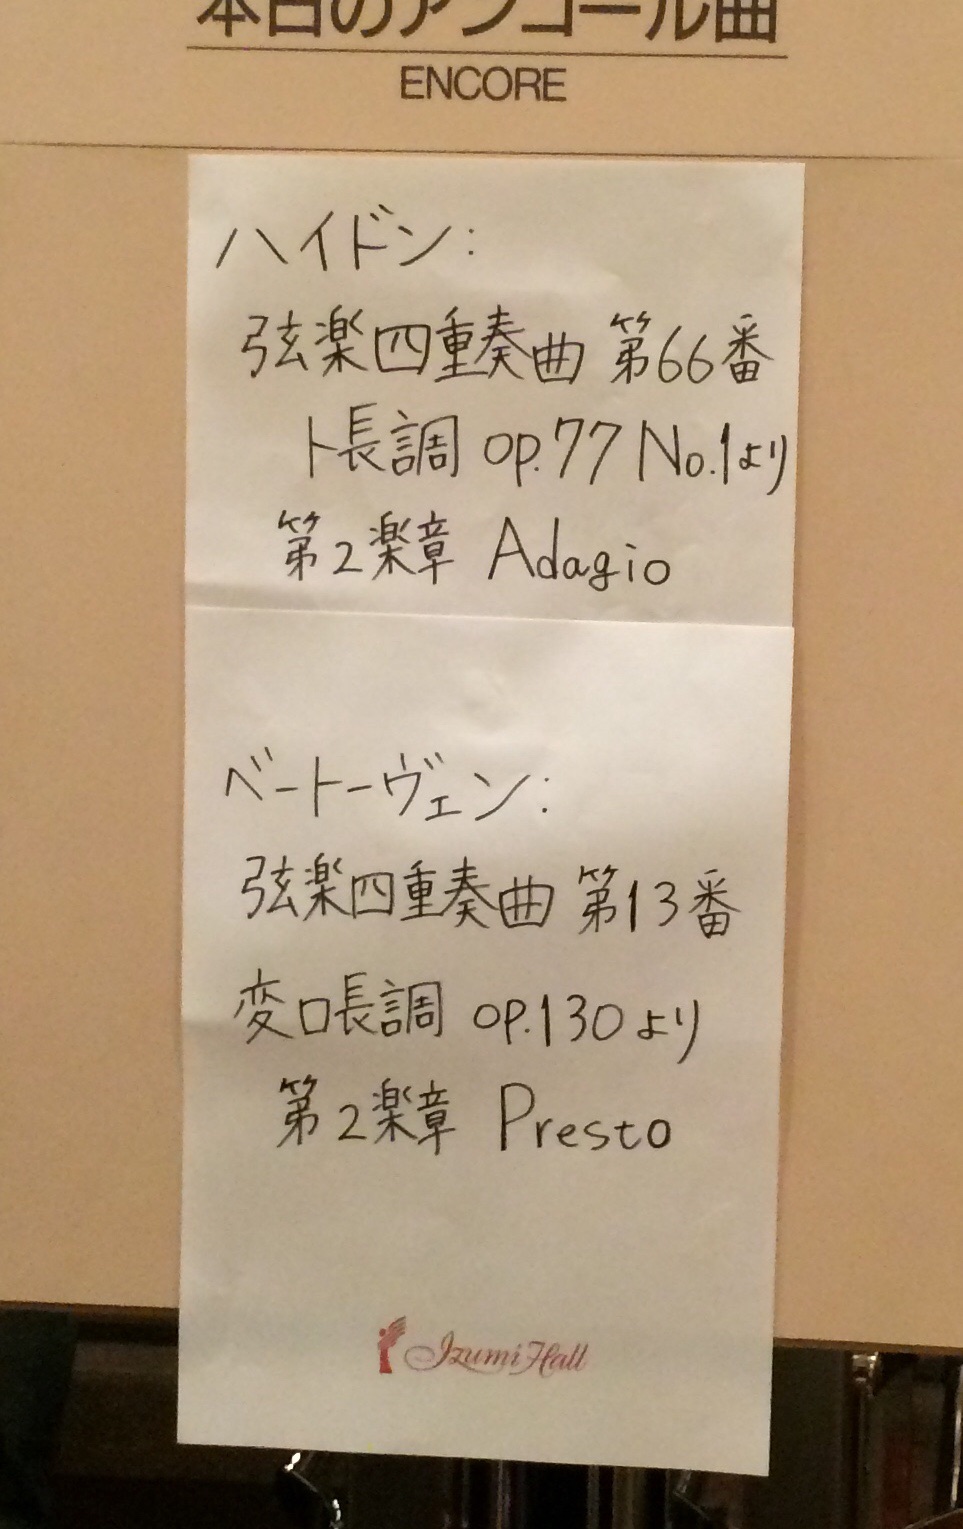 本日のアンコール曲
ENCORE
ハイドン:
弦楽四重奏曲 第66番
ト長調 op.77 No.1より
第2楽章 Adagio
ベートーヴェン:
弦楽四重奏曲 第13番
変ロ長調 op.130より
第2楽章 Presto
Izumi Hall